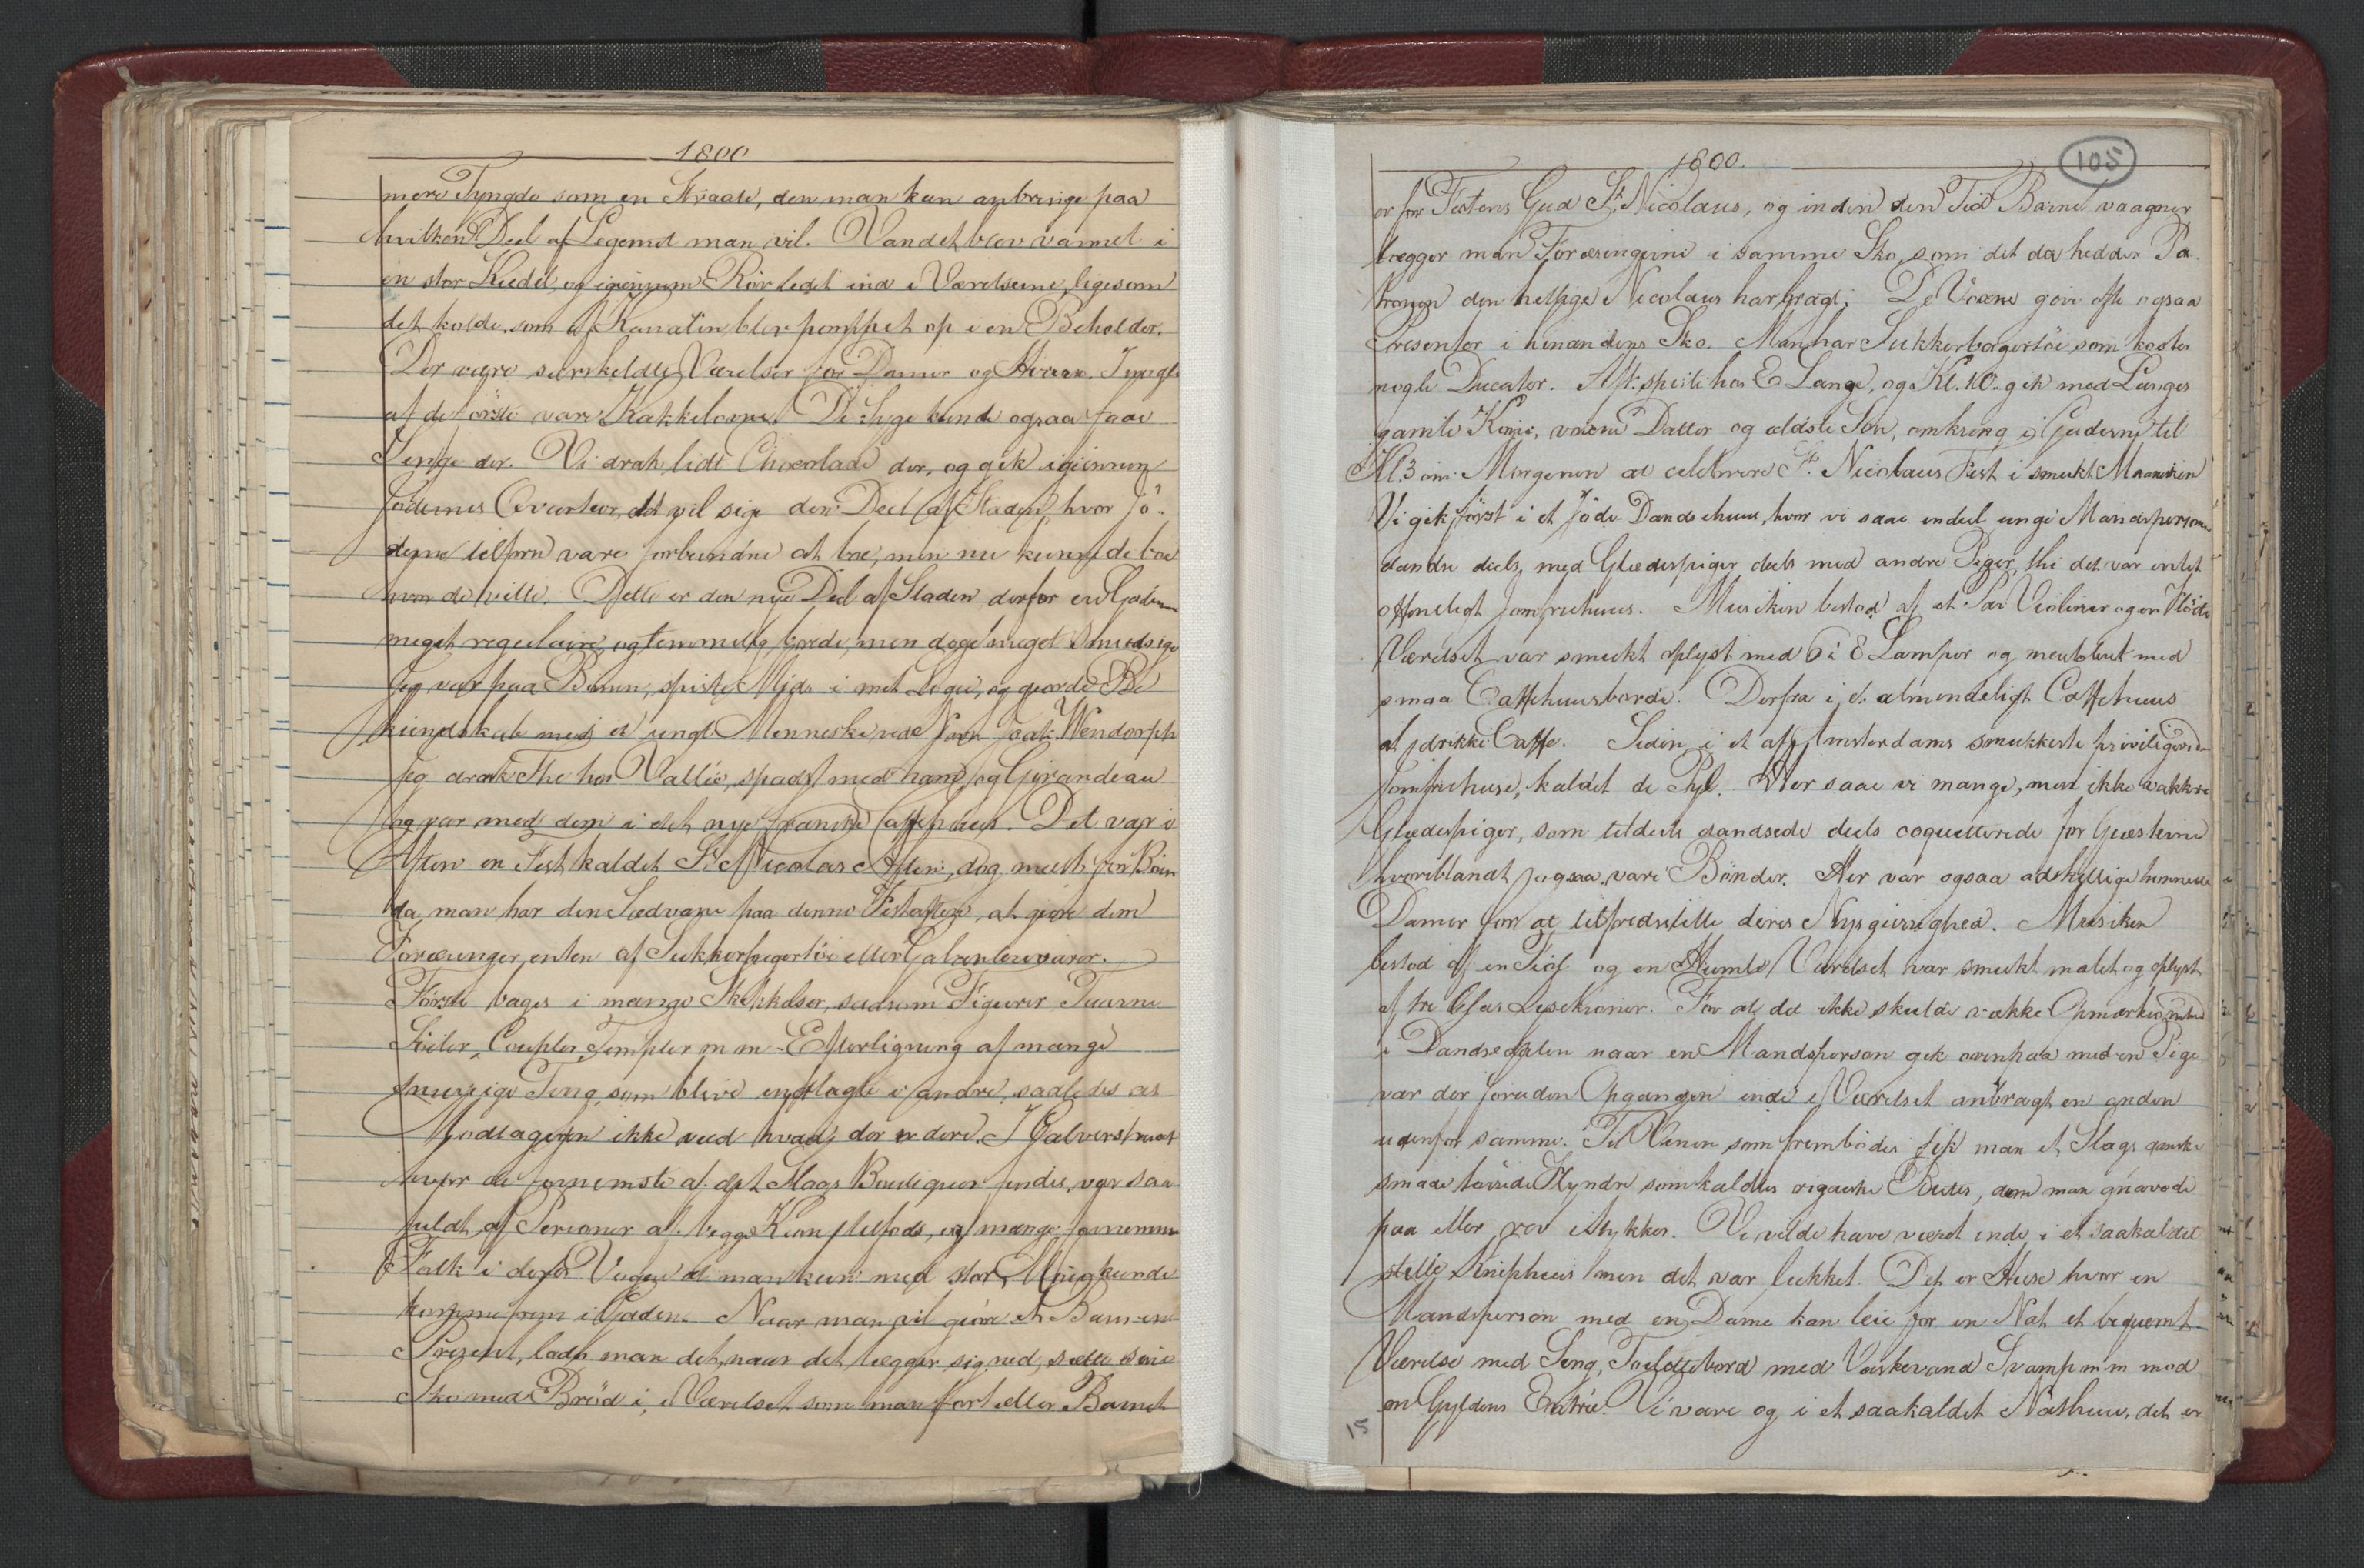 1800
mere Tyngde som en Straale, den man kan anbringe paa
hvilken Deel af Legemet man vil. Vandet blev varmet i
en stor Kiedel og igiennem Rör ledet ind i Værelserne, ligesom
det kolde, som af Kanalen blev pompet op i en Beholder.
Der vare særskeldte Værelser for Damer og Herrer. I nogle
af de förste vare Kakkelovne. De Syge kunde ogsaa faae
Senge der. Vi drak lidt Chocolade der, og gik igiennem
Jödernes Qvarteer, det vil sige den Deel af Staden, hvor Jö-
derne tilforn vare forbundne at boe, men nu kunne de boe
hvor de ville. Dette er den nye Deel af Staden derfor ere Gaderne
meget regulaire, og temmelig brede, men dog meget smudsige
Jeg var paa Börsen, spiste Mids i mit Logie, og giorde Be
kiendskab med et ungt Menneske ved Navn Jack Wendorph
Jeg drak The hos Vallée, spads. med ham og Girandeau
og var med dem i det nye franske Caffehuus. Det var i
Aften en Fest kaldet St Nicolas Aften, dog meest for Börn
da man har den Sædvane paa denne Festaften, at giöre dem
Foræringer, enten af Sukkerbagertöi eller Galanterivarer.
Förste bages i mange Skikkelser, saasom Figurer, Taarne
Söiler, Coupler, Templer m m Efterligning af mange
snurrige Ting, som blive indlagte i andre, saaledes at
Modtageren ikke veed hvad der er deri. I Calverstraat
hvor de fornemste af det Slags Boutiquer findes, var saa
fuldt af Personer af begge Kiön tilfods, og mange fornemme
Folk i deres Vogne at man kun med stor Möie kunde
komme frem i Gaden. Naar man vil giöre et Barn en
Present, lader man det, naar det lægger sig ned, sætte sine
Sko med Bröd i, i Værelset som man fortæller Barnet
1800.
105
er for Festens Gud St Nicolaus, og inden den Tid Barnet vaagner
lægger man Foræringerne i samme Sko, som det da hedder Pa-
tronen den hellige Nicolaus har bragt. De Voxne give ofte ogsaa
Presenter i hinandens Sko. Man har Sukkerbagertöi som koster
nogle Ducater. Aft. spiste hos E Lange, og Kl. 10. gik med Langes
gamle Kone, voxne Datter og ældste Sön, omkring i Gaderne til
Kl. 3 om Morgenen at celebrere St. Nicolaus Fest i smukt Maaneskin
Vi gik först i et Jöde Dandsehuus, hvor vi saae endeel unge Mandspersoner
dandse deels med Glædespiger deels med andre Piger, thi det var intet
offentligt Jomfruhuus. Musiken bestod af et Par Violiner og en Flöite
Værelset var smukt oplyst med 6 à 8 Lamper og meubleret med
smaa Caffehuusborde. Derfra i et almindeligt Caffehuus
at drikke Caffe. Siden i et af Amsterdams smukkeste privilegerede
Jomfruhuse, kaldet de Pyl. Her saae vi mange, men ikke vakkre
Glædespiger, som tildeels dandsede deels coquetterede for Giæsterne
hvoriblandt ogsaa vare Bönder. Her var ogsaa adskillige
Damer for at tilfredsstille deres Nysgierrighed. Musiken
bestod af en Fiol og en Humle Værelset var smukt malet og oplyst
af tre Glas Lysekroner. For at det ikke skulde vække Opmærksomhed
i Dandsesalen naar en Mandsperson gik ovenpaa med en Pige,
var der foruden Opgangen inde i Værelset anbragt en anden
udenfor samme. Til Vinen som frembödes fik man et Slags ganske
smaae Flyndre som kaldtes, dem man gnavede
paa eller rev i Stykker. Vi vilde have været inde i et saakaldet
stille Kniphuis men det var lukket. Det er Huse hvor en
Mandsperson med en Dame kan leie for en Nat et beqvemt
Værelse med Seng, Toilettebord med Vaskevand Svamp m m mod
en Gyldens Entrée. Vi vare og i et saakaldet Nathuus, det er
15